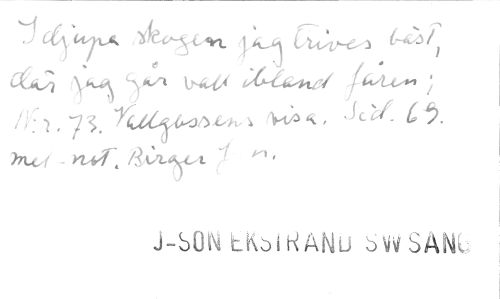 I djupa skogen jag trives bäst,
där jag går vall ibland fåren;
N:r. 73. Vallgossens visa. Sid. 69.
mel-not. Birger
J-SON EKSTRAND SWSANG